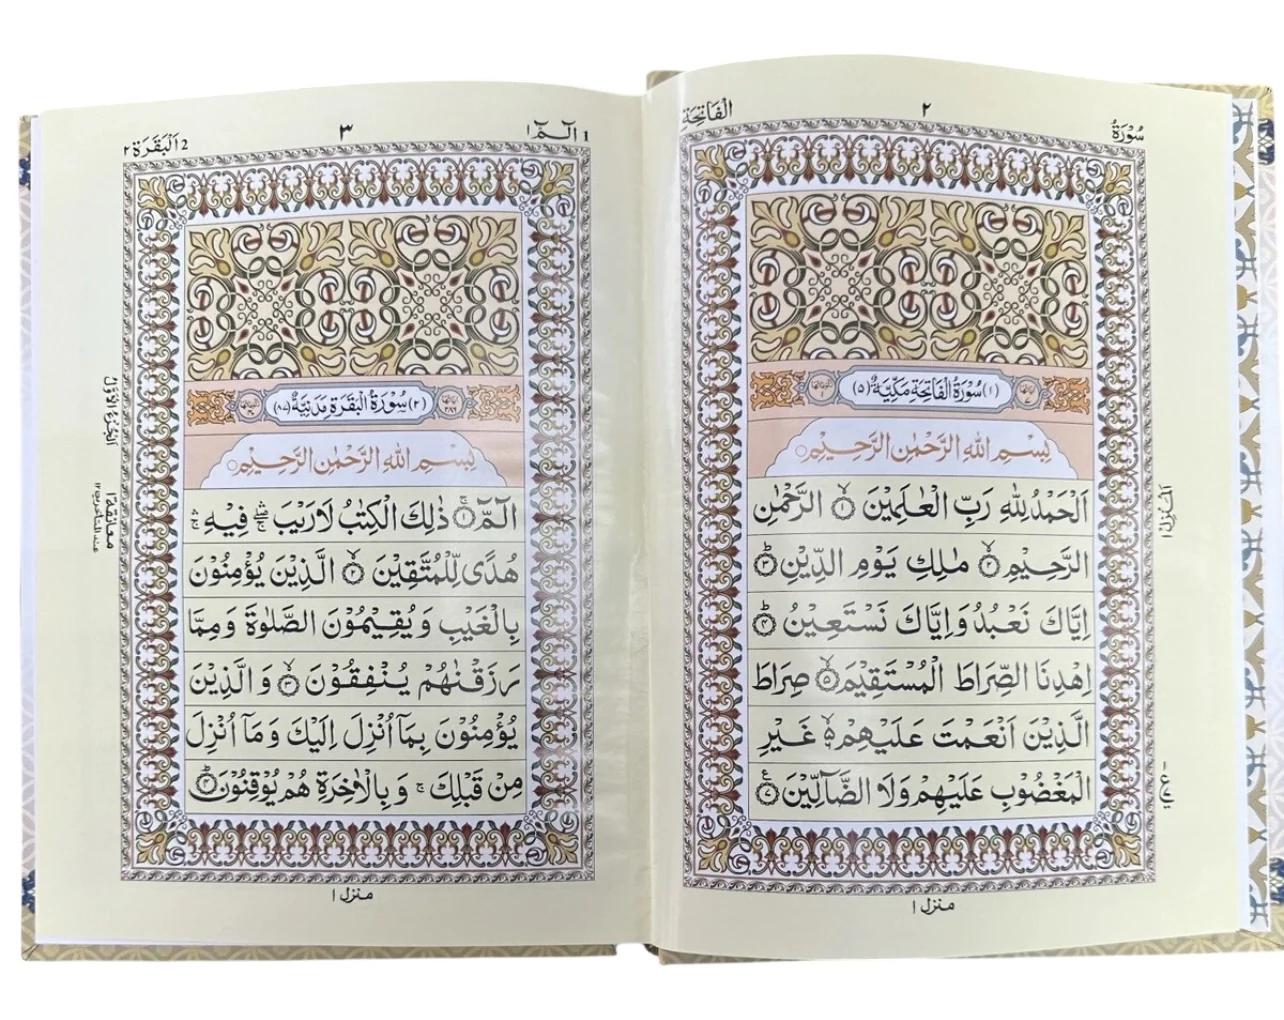 سُوْرَةُ ٢ الْفَاتِحَةِ
(١) سُوْرَةُ الْفَاتِحَةِ مَكِّيَّةٌ (٥)
بِسْمِ اللهِ الرَّحْمٰنِ الرَّحِيْمِ ○
اَلْحَمْدُ لِلّٰهِ رَبِّ الْعٰلَمِيْنَ ۙ﴿١﴾ الرَّحْمٰنِ
الرَّحِيْمِ ۙ﴿٢﴾ مٰلِكِ يَوْمِ الدِّيْنِ ؕ﴿٣﴾
اِيَّاكَ نَعْبُدُ وَاِيَّاكَ نَسْتَعِيْنُ ؕ﴿٤﴾
اِهْدِنَا الصِّرَاطَ الْمُسْتَقِيْمَ ۙ﴿٥﴾ صِرَاطَ
الَّذِيْنَ اَنْعَمْتَ عَلَيْهِمْ ۙ۬ غَيْرِ
الْمَغْضُوْبِ عَلَيْهِمْ وَلَا الضَّآلِّيْنَ
منزل ١
اَلْمَنْزِلُ ١
1 الٓـمّٓ ١ ٣ 2 اَلْبَقَرَة ٢
(٢) سُوْرَةُ الْبَقَرَةِ مَدَنِيَّةٌ (٨٧)
اٰیاتها ٢٨٦
بِسْمِ اللهِ الرَّحْمٰنِ الرَّحِيْمِ ○
الٓمّٓ ۚ﴿١﴾ ذٰلِكَ الْكِتٰبُ لَا رَيْبَ ۛۚ فِيْهِ ۛ
هُدًى لِّلْمُتَّقِيْنَ ۙ﴿٢﴾ الَّذِيْنَ يُؤْمِنُوْنَ
بِالْغَيْبِ وَيُقِيْمُوْنَ الصَّلٰوةَ وَمِمَّا
رَزَقْنٰهُمْ يُنْفِقُوْنَ ۙ﴿٣﴾ وَالَّذِيْنَ
يُؤْمِنُوْنَ بِمَآ اُنْزِلَ اِلَيْكَ وَمَآ اُنْزِلَ
مِنْ قَبْلِكَ ۚ وَبِالْاٰخِرَةِ هُمْ يُوْقِنُوْنَ ؕ﴿٤﴾
منزل ١
اَلْجُزْءُ الْاَوَّلُ
معانقة ١
عند المتأخرين ١٢